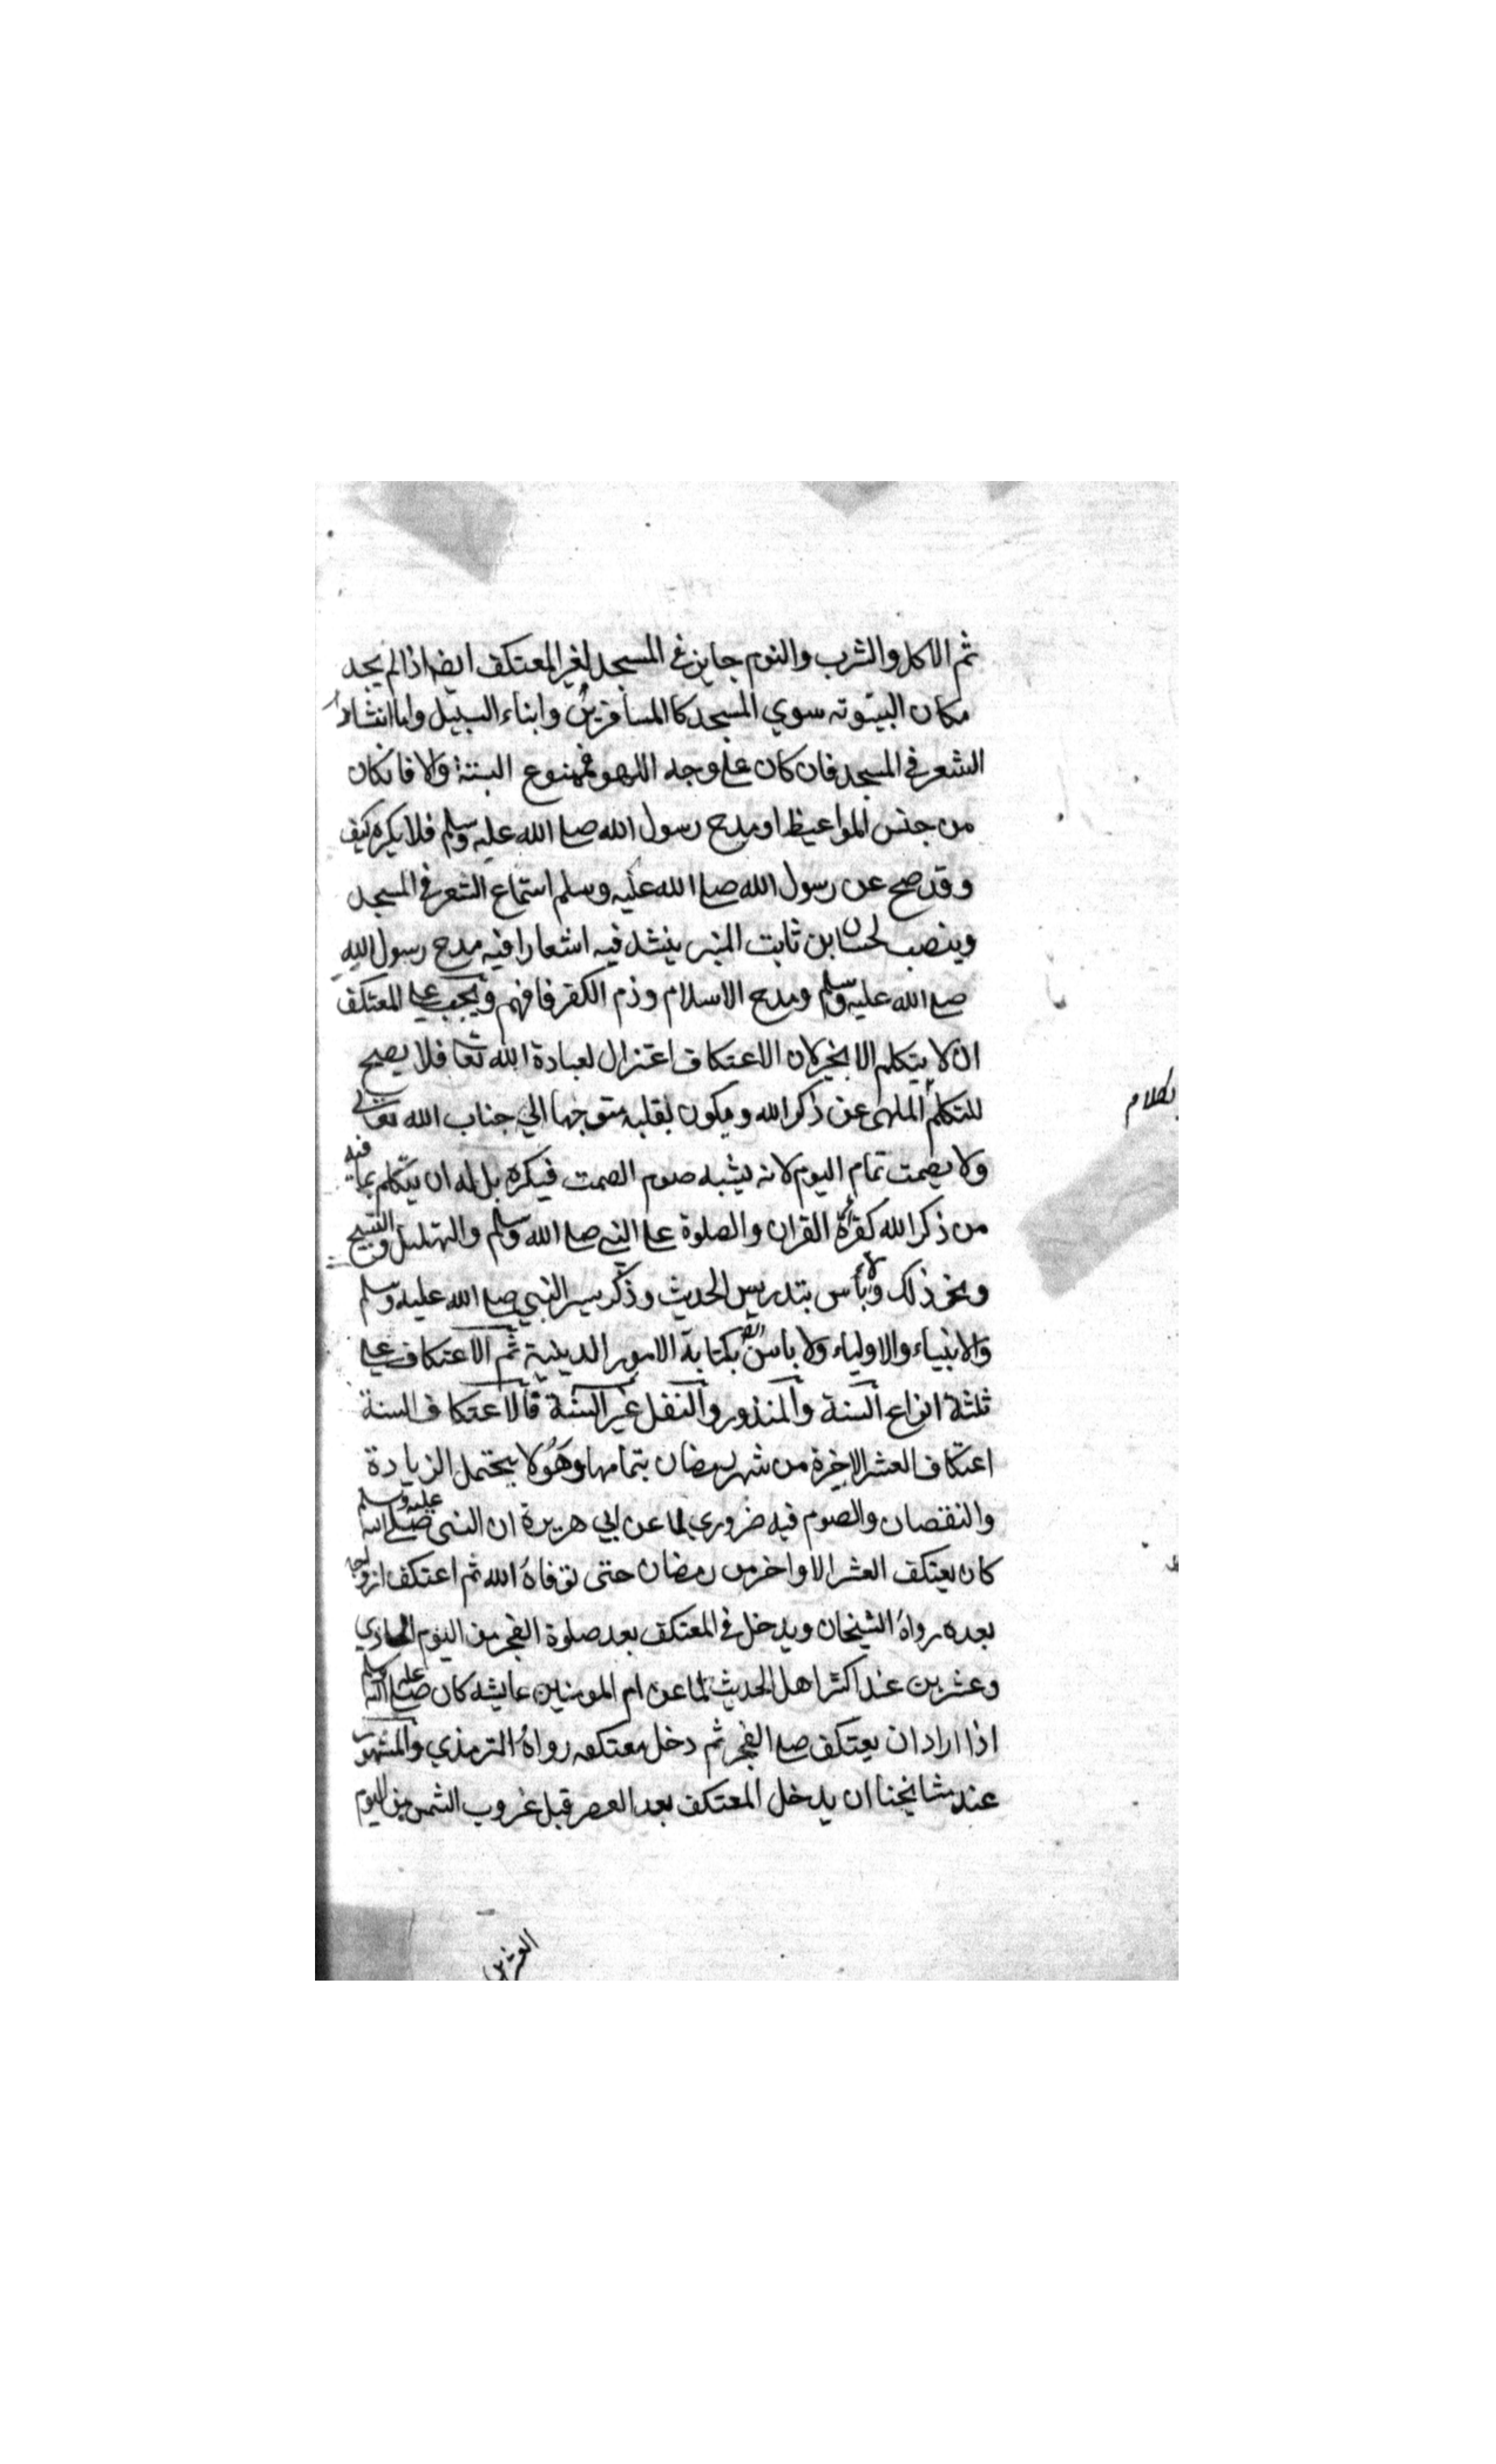 ثم الاكل والشرب والنوم جايز في المسجد لغير المعتكف ايضا اذا لم يجد
مكان البيتوتة سوي المسجد كالمسافرين وابناء السبيل واما انشاد
الشعر في المسجد فان كان علي وجه اللهو فممنوع البتة والا فان كان
من جنس المواعيظ او مدح رسول الله صلي الله عليه وسلم فلا يكره كيف
وقد صح عن رسول الله صلي الله عليه وسلم استماع الشعر في المسجد
وينصب لحسان بن ثابت المنبر ينشد فيه اشعارا فيه مدح رسول الله
صلي الله عليه وسلم ومدح الاسلام وذم الكفر فافهم ويجب علي المعتكف
ان لا يتكلم الا بخير لان الاعتكاف اعتزال لعبادة الله تعا فلا يصح
للتكلم الملهي عن ذكر الله ويكون بقلبه متوجها الي جناب الله تعالي
بكلام
ولا يصمت تمام اليوم لانه يشبه صوم الصمت فيكره بل له ان يتكلم بما فيه
من ذكر الله كقرأة القران والصلوة علي النبي صلي الله وسلم والتهليل والتسبيح
ونحو ذلك ولا بأس بتدريس الحديث وذكر سير النبي صلي الله عليه وسلم
والانبياء والاولياء ولا باس ايضا بكتابة الامور الدينية ثم الاعتكاف علي
ثلثة انواع السنة والمنذور والنفل غير السنة فالاعتكاف السنة
اعتكاف العشر الاخيرة من شهر رمضان بتمامها وهو لا يحتمل الزيادة
والنقصان والصوم فيه ضروري لما عن ابي هريرة ان النبي صلي الله عليه وسلم
كان يعتكف العشر الاواخر من رمضان حتى توفاه الله ثم اعتكف ازواجه
بعده رواه الشيخان ويدخل في المعتكف بعد صلوة الفجر من اليوم الحادي
وعشرين عند اكثر اهل الحديث لما عن ام المومنين عايشه كان صلي الله عليه وسلم
اذا اراد ان يعتكف صلي الفجر ثم دخل معتكفه رواه الترمذي والمشهور
عند مشائخنا ان يدخل المعتكف بعد العصر قبل غروب الشمس من اليوم
العشرين